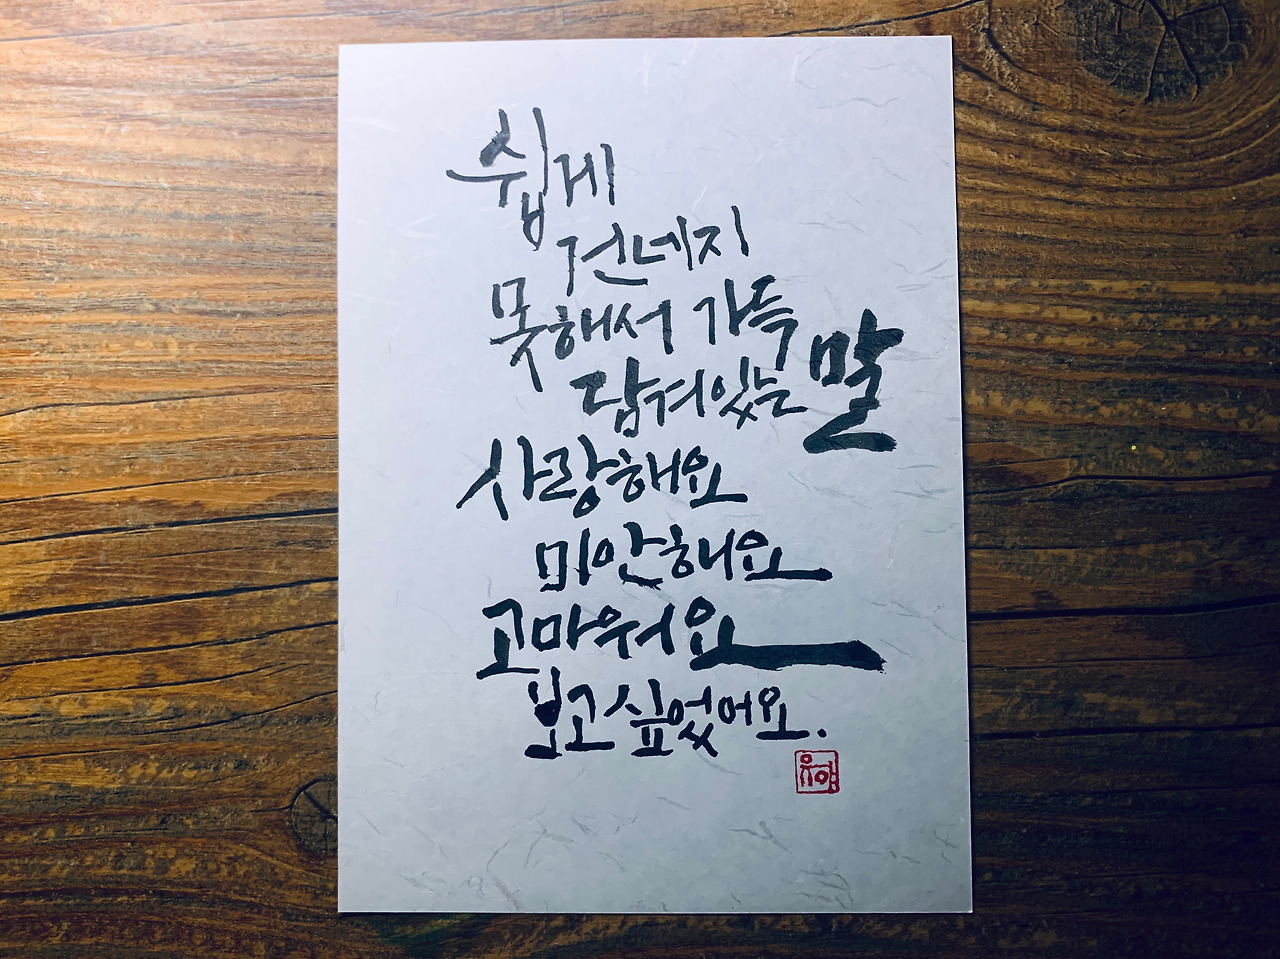 쉽게
건네지
못해서 가득
담겨있는 말
사랑해요
미안해요
고마워요
보고싶었어요.